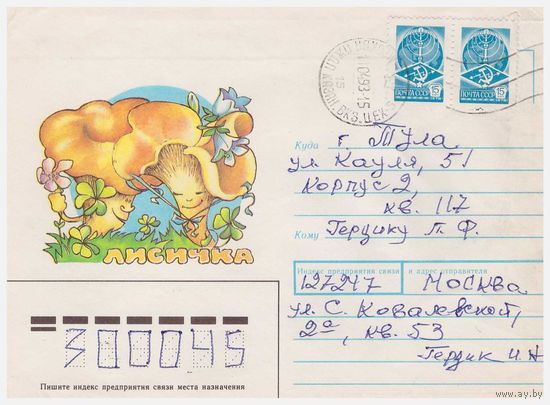 ПОЧТА СССР 15
ПОЧТА СССР 15
15
Куда г. Тула
ул. Кауля, 51
Корпус 2,
кв. 117
Кому Герцику П. Ф.
ЛИСИЧКА
Индекс предприятия связи и адрес отправителя
127247 Москва
ул. С. Ковалевской,
2а, кв. 53
Герцик И. Н
300045
Пишите индекс предприятия связи места назначения
www.ay.by